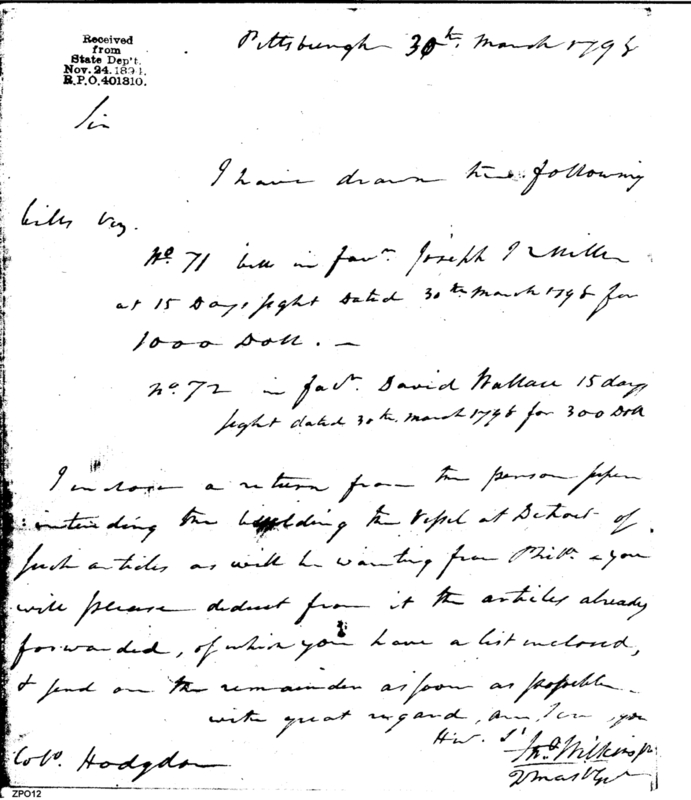 Received
from
State Dep't.
Nov. 24. 1894.
R.P.O. 401310.
Pittsburgh 30th. March 1798
Sir
I have drawn the following
bills viz.
No. 71 bill in favr. Joseph Miller
at 15 Days sight Dated 30th March 1798 for
1000 Doll. —
No. 72 in favr. David Wallace 15 days
sight dated 30th. March 1798 for 300 Doll
I inclose a return from the person super
intending the building the Vessel at Detroit of
such articles as will be wanting from Philа. & you
will please deduct from it the articles already
forwarded, of which you have a list inclosed,
& send on the remainder as soon as possible —
with great regard, am Sir, your
Hue. St
Jno. Wilkins jr.
Qr Mas. Genl
Colo. Hodgdon
ZPO12